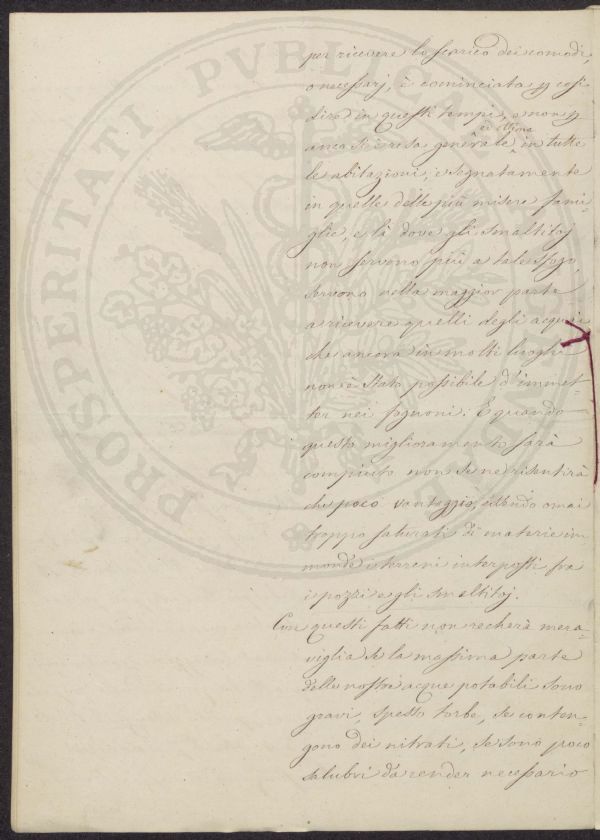 PROSPERITATI PVBLICAE
per ricevere lo scarico dei comodi,
o necessarj, è cominciata p cosi
dire in questi tempi, e non p
anco si è resa generale ed ultima in tutte
le abitazioni, e segnatamente
in quelle delle più misere fami-
glie, e là dove gli smaltitoj
non servono più a tale sfogo,
servono nella maggior parte
a ricevere quelli degli acquaj
che ancora in molti luoghi
non è stato possibile d'immet-
ter nei fognoni. E quando
questo miglioramento sarà
compiuto non se ne risentirà
che poco vantaggio, essendo omai
troppo saturati di materie im-
monde i terreni interposti fra
i pozzi e gli smaltitoj.
Con questi fatti non recherà mera-
viglia se la massima parte
delle nostre acque potabili sono
gravi, spesso torbe, se conten-
gono dei nitrati, se sono poco
salubri da render necessario